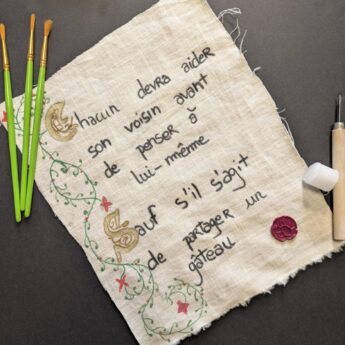 Chacun devra aider
son voisin avant
de penser à
lui-même
Sauf s'il s'agit
de partager un
gâteau